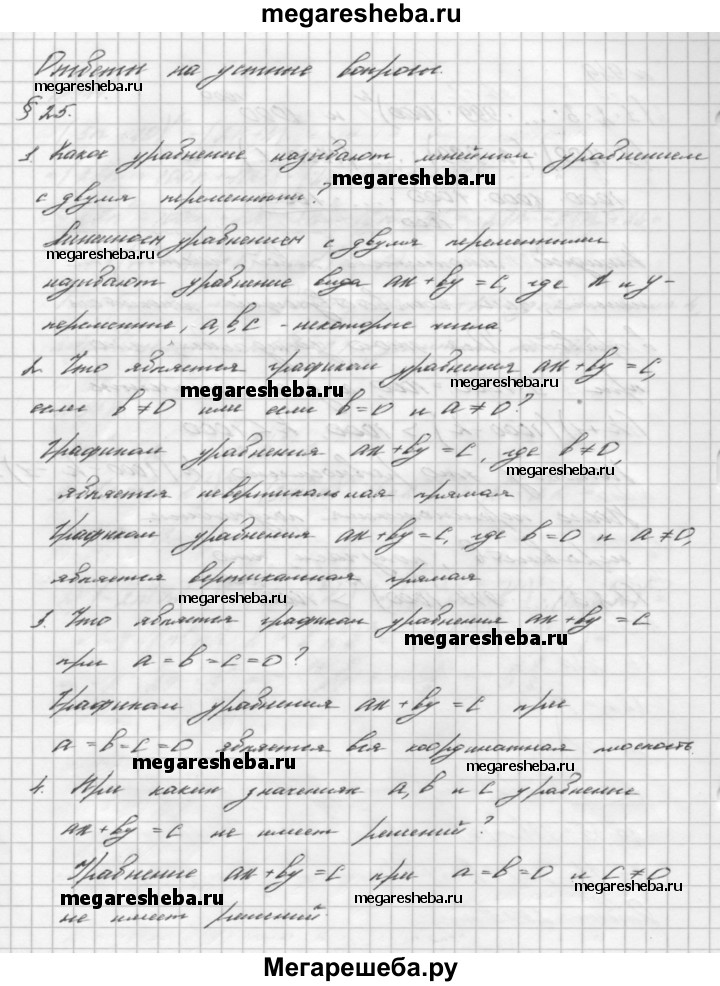 megaresheba.ru
Ответы на устные вопросы.
megaresheba.ru
§ 25.
1. Какое уравнение называют линейным уравнением
megaresheba.ru
с двумя переменными?
Линейным уравнением с двумя переменными
megaresheba.ru
называют уравнение вида ax + by = c, где x и y -
переменные, a, b, c - некоторые числа
2. Что является графиком уравнения ax + by = c,
megaresheba.ru megaresheba.ru
если b ≠ 0 или если b = 0 и a ≠ 0?
Графиком уравнения ax + by = c, где b ≠ 0,
megaresheba.ru
является невертикальная прямая
Графиком уравнения ax + by = c, где b = 0 и a ≠ 0,
является вертикальная прямая
megaresheba.ru
3. Что является графиком уравнения ax + by = c
megaresheba.ru
при a = b = c = 0?
Графиком уравнения ax + by = c при
a = b = c = 0 является вся координатная плоскость.
megaresheba.ru megaresheba.ru
4. При каких значениях a, b и c уравнение
ax + by = c не имеет решений?
Уравнение ax + by = c при a = b = 0 и c ≠ 0
megaresheba.ru megaresheba.ru megaresheba.ru
не имеет решений.
Мегарешеба.ру